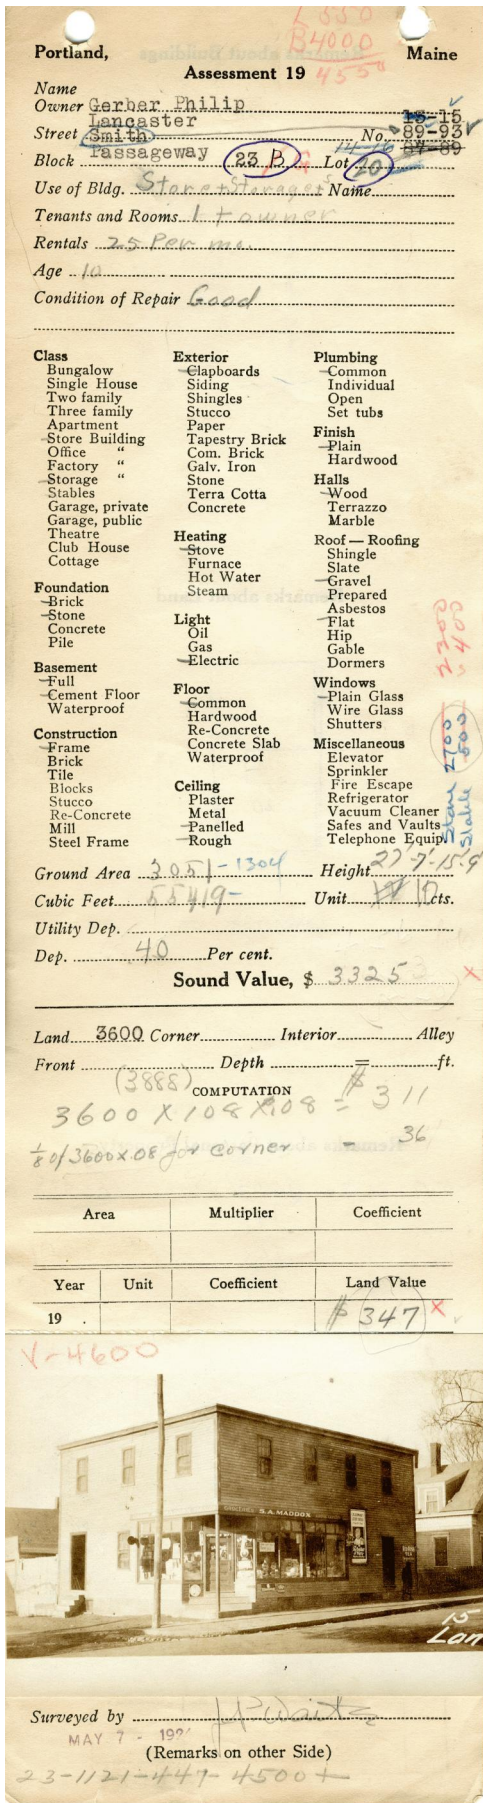 L 550
B 4000
4550
Portland, Maine
Assessment 19
Name
Owner Gerber Philip
Lancaster 15-15
Street Smith No. 89-93
Passageway 14-16 87-89
Block 23 B Lot 20
Use of Bldg. Store + Storage Name
Tenants and Rooms 1 + owner
Rentals 25 Per mo.
Age 10
Condition of Repair Good
Class
Bungalow
Single House
Two family
Three family
Apartment
Store Building
Office "
Factory "
Storage "
Stables
Garage, private
Garage, public
Theatre
Club House
Cottage
Foundation
Brick
Stone
Concrete
Pile
Basement
Full
Cement Floor
Waterproof
Construction
Frame
Brick
Tile
Blocks
Stucco
Re-Concrete
Mill
Steel Frame
Exterior
Clapboards
Siding
Shingles
Stucco
Paper
Tapestry Brick
Com. Brick
Galv. Iron
Stone
Terra Cotta
Concrete
Heating
Stove
Furnace
Hot Water
Steam
Light
Oil
Gas
Electric
Floor
Common
Hardwood
Re-Concrete
Concrete Slab
Waterproof
Ceiling
Plaster
Metal
Panelled
Rough
Plumbing
Common
Individual
Open
Set tubs
Finish
Plain
Hardwood
Halls
Wood
Terrazzo
Marble
Roof — Roofing
Shingle
Slate
Gravel
Prepared
Asbestos
Flat
Hip
Gable
Dormers
Windows
Plain Glass
Wire Glass
Shutters
Miscellaneous
Elevator
Sprinkler
Fire Escape
Refrigerator
Vacuum Cleaner
Safes and Vaults
Telephone Equip.
Store 2700
Stable 500
Ground Area 2051-1304 Height 27'-7-15-9
Cubic Feet 55419- Unit 10 cts.
Utility Dep.
Dep. 40 Per cent.
Sound Value, $ 3325
Land 3600 Corner Interior Alley
Front Depth = ft.
(3888)
COMPUTATION
3600 X 108 X .08 = $311
1/8 of 3600 x .08 for corner - 36
Area Multiplier Coefficient
Year Unit Coefficient Land Value
19 . $ 347 X
V-4600
GROCERIES S.A. MADDOX
15
Lan
Surveyed by
MAY 7 - 192
(Remarks on other Side)
23-1121-447-4500+